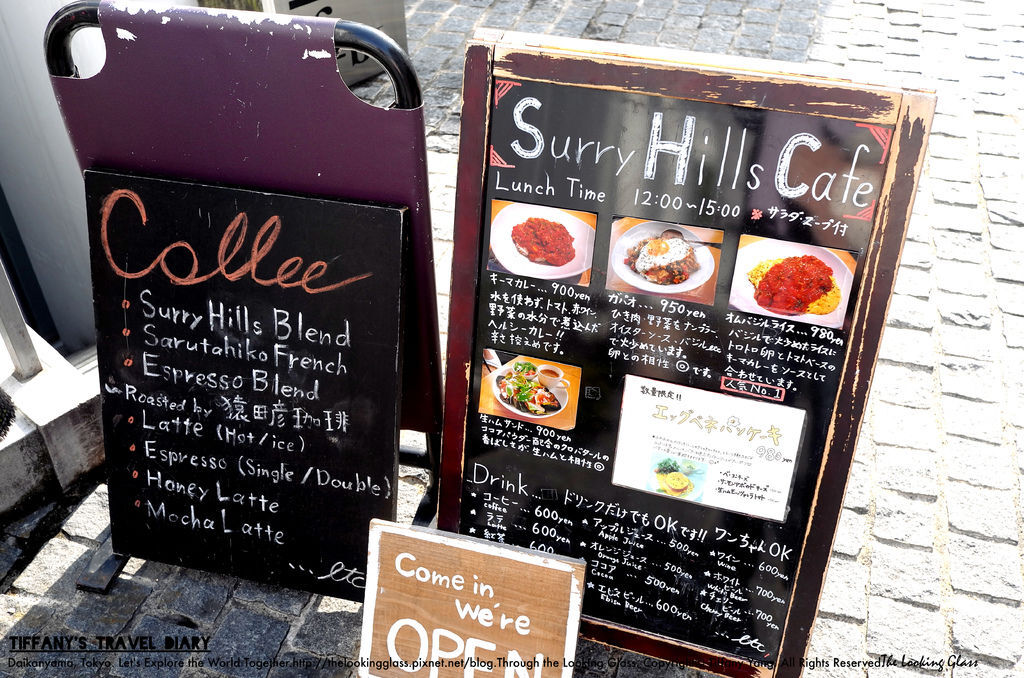 Coffee
Surry Hills Blend
Sarutahiko French
Espresso Blend
Roasted by 猿田彦珈琲
Latte (Hot/ice)
Espresso (Single/Double)
Honey Latte
Mocha Latte
...etc
Surry Hills Cafe
Lunch Time 12:00~15:00 ※サラダ・スープ付
キーマカレー... 900yen
水を使わず、トマト、赤ワイン、
野菜の水分で煮込んだ
ヘルシーカレー!!
辛さ控えめです。
ガパオ... 950yen
ひき肉・野菜をナンプラー
オイスターソース・バジルetc
で火炒めています。
卵との相性◎です。
オムバジルライス... 980yen
バジルで火炒めたライスに
トロトロ卵とトマトベース
キーマカレーをソースとして
合わせています。
人気No.1
生ハムサンド... 900yen
ココアパウダー配合のクロバタールの
香ばしさが、生ハムと相性◎
数量限定!!
エッグベネパンケーキ
980yen
Drink ドリンクだけでもOKです!! ワンちゃんOK
★コーヒー... 600yen
Coffee
★ラテ... 600yen
Latte
★紅茶 600
★アップルジュース... 500yen
Apple Juice
★オレンジジュース... 500yen
Orange Juice
★ココア... 500yen
Cocoa
★エビスビール... 600yen
Ebisu Beer
★ワイン... 600yen
Wine
★ホワイトビール... 700yen
White Beer
★チェリービール... 700yen
Cherry Beer
...etc
Come in
we're
OPEN
TIFFANY'S TRAVEL DIARY
Daikanyama, Tokyo. Let's Explore the World Together.http://thelookingglass.pixnet.net/blog.Through the Looking Glass, Copyright Tiffany Yang, All Rights Reserved The Looking Glass